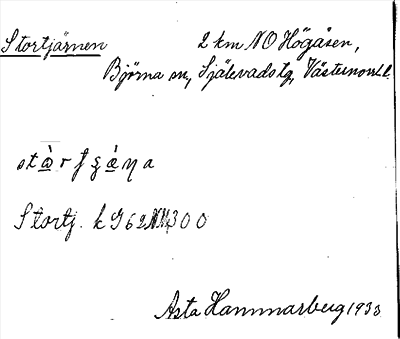 Stortjärnen 2 km NO Högåsen,
Björna sn, Själevads tg, Västernorrl. l.
Stortj. k G 62 300
Asta Hammarberg 1933